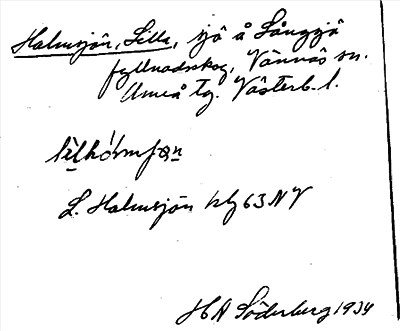 Halmsjön, Lilla, sjö å Långsjö
fyllnadsskog, Vännäs sn.
Umeå tg. Västerb. l.
L. Halmsjön kbl 63 NV
HA Söderberg 1934